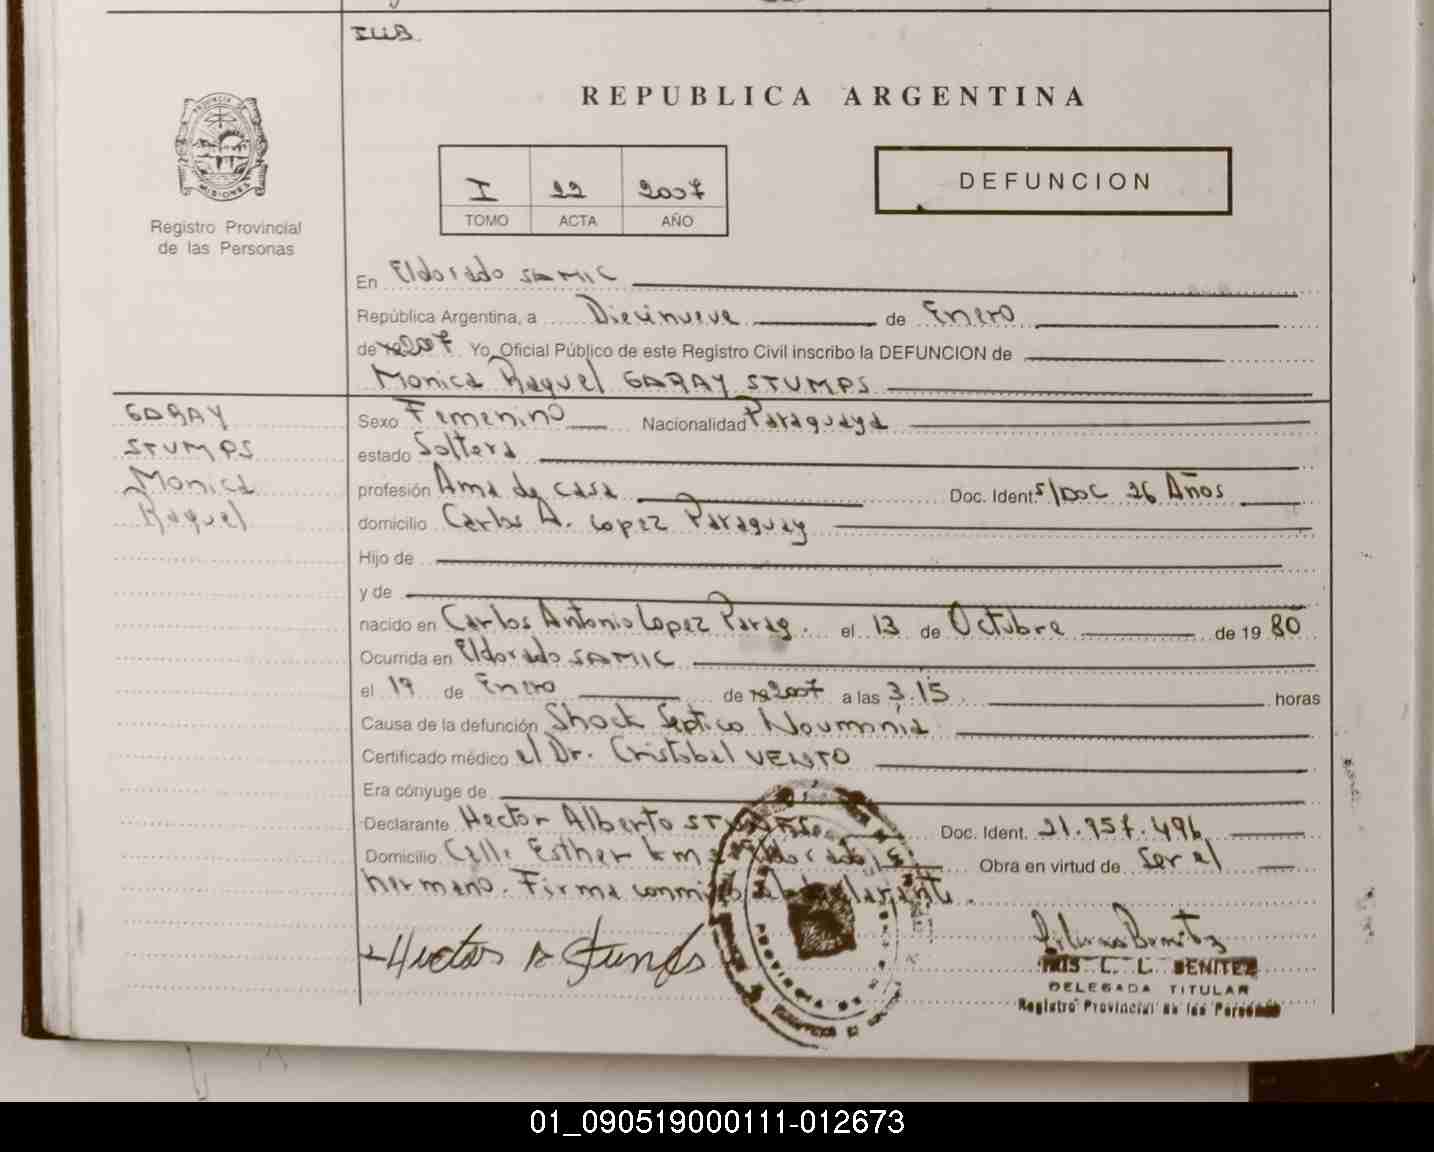 REPUBLICA ARGENTINA
I 22 2007
TOMO ACTA AÑO
DEFUNCION
Registro Provincial
de las Personas
En Eldorado SAMIC
República Argentina, a Diecinueve de Enero
de 2007 Yo, Oficial Público de este Registro Civil inscribo la DEFUNCION de
Monica Raquel GARAY STUMPS
GARAY
STUMPS
Monica
Raquel
Sexo Femenino Nacionalidad Paraguaya
estado Soltera
profesión Ama de casa Doc. Ident. S/DOC 26 Años
domicilio Carlos A. Lopez Paraguay
Hijo de
y de
nacido en Carlos Antonio Lopez Parag. el 13 de Octubre de 19 80
Ocurrida en Eldorado SAMIC
el 17 de Enero de 2007 a las 3,15 horas
Causa de la defunción Shock Septico Neumonia
Certificado médico el Dr. Cristobal VENTO
Era cónyuge de
Declarante Hector Alberto Doc. Ident. 21.957.496
Domicilio Calle Esther km Obra en virtud de Ser el
hermano. Firma conmigo
Hector A Stumps
IRIS L. L. BENITEZ
DELEGADA TITULAR
Registro Provincial de las Personas
01_090519000111-012673